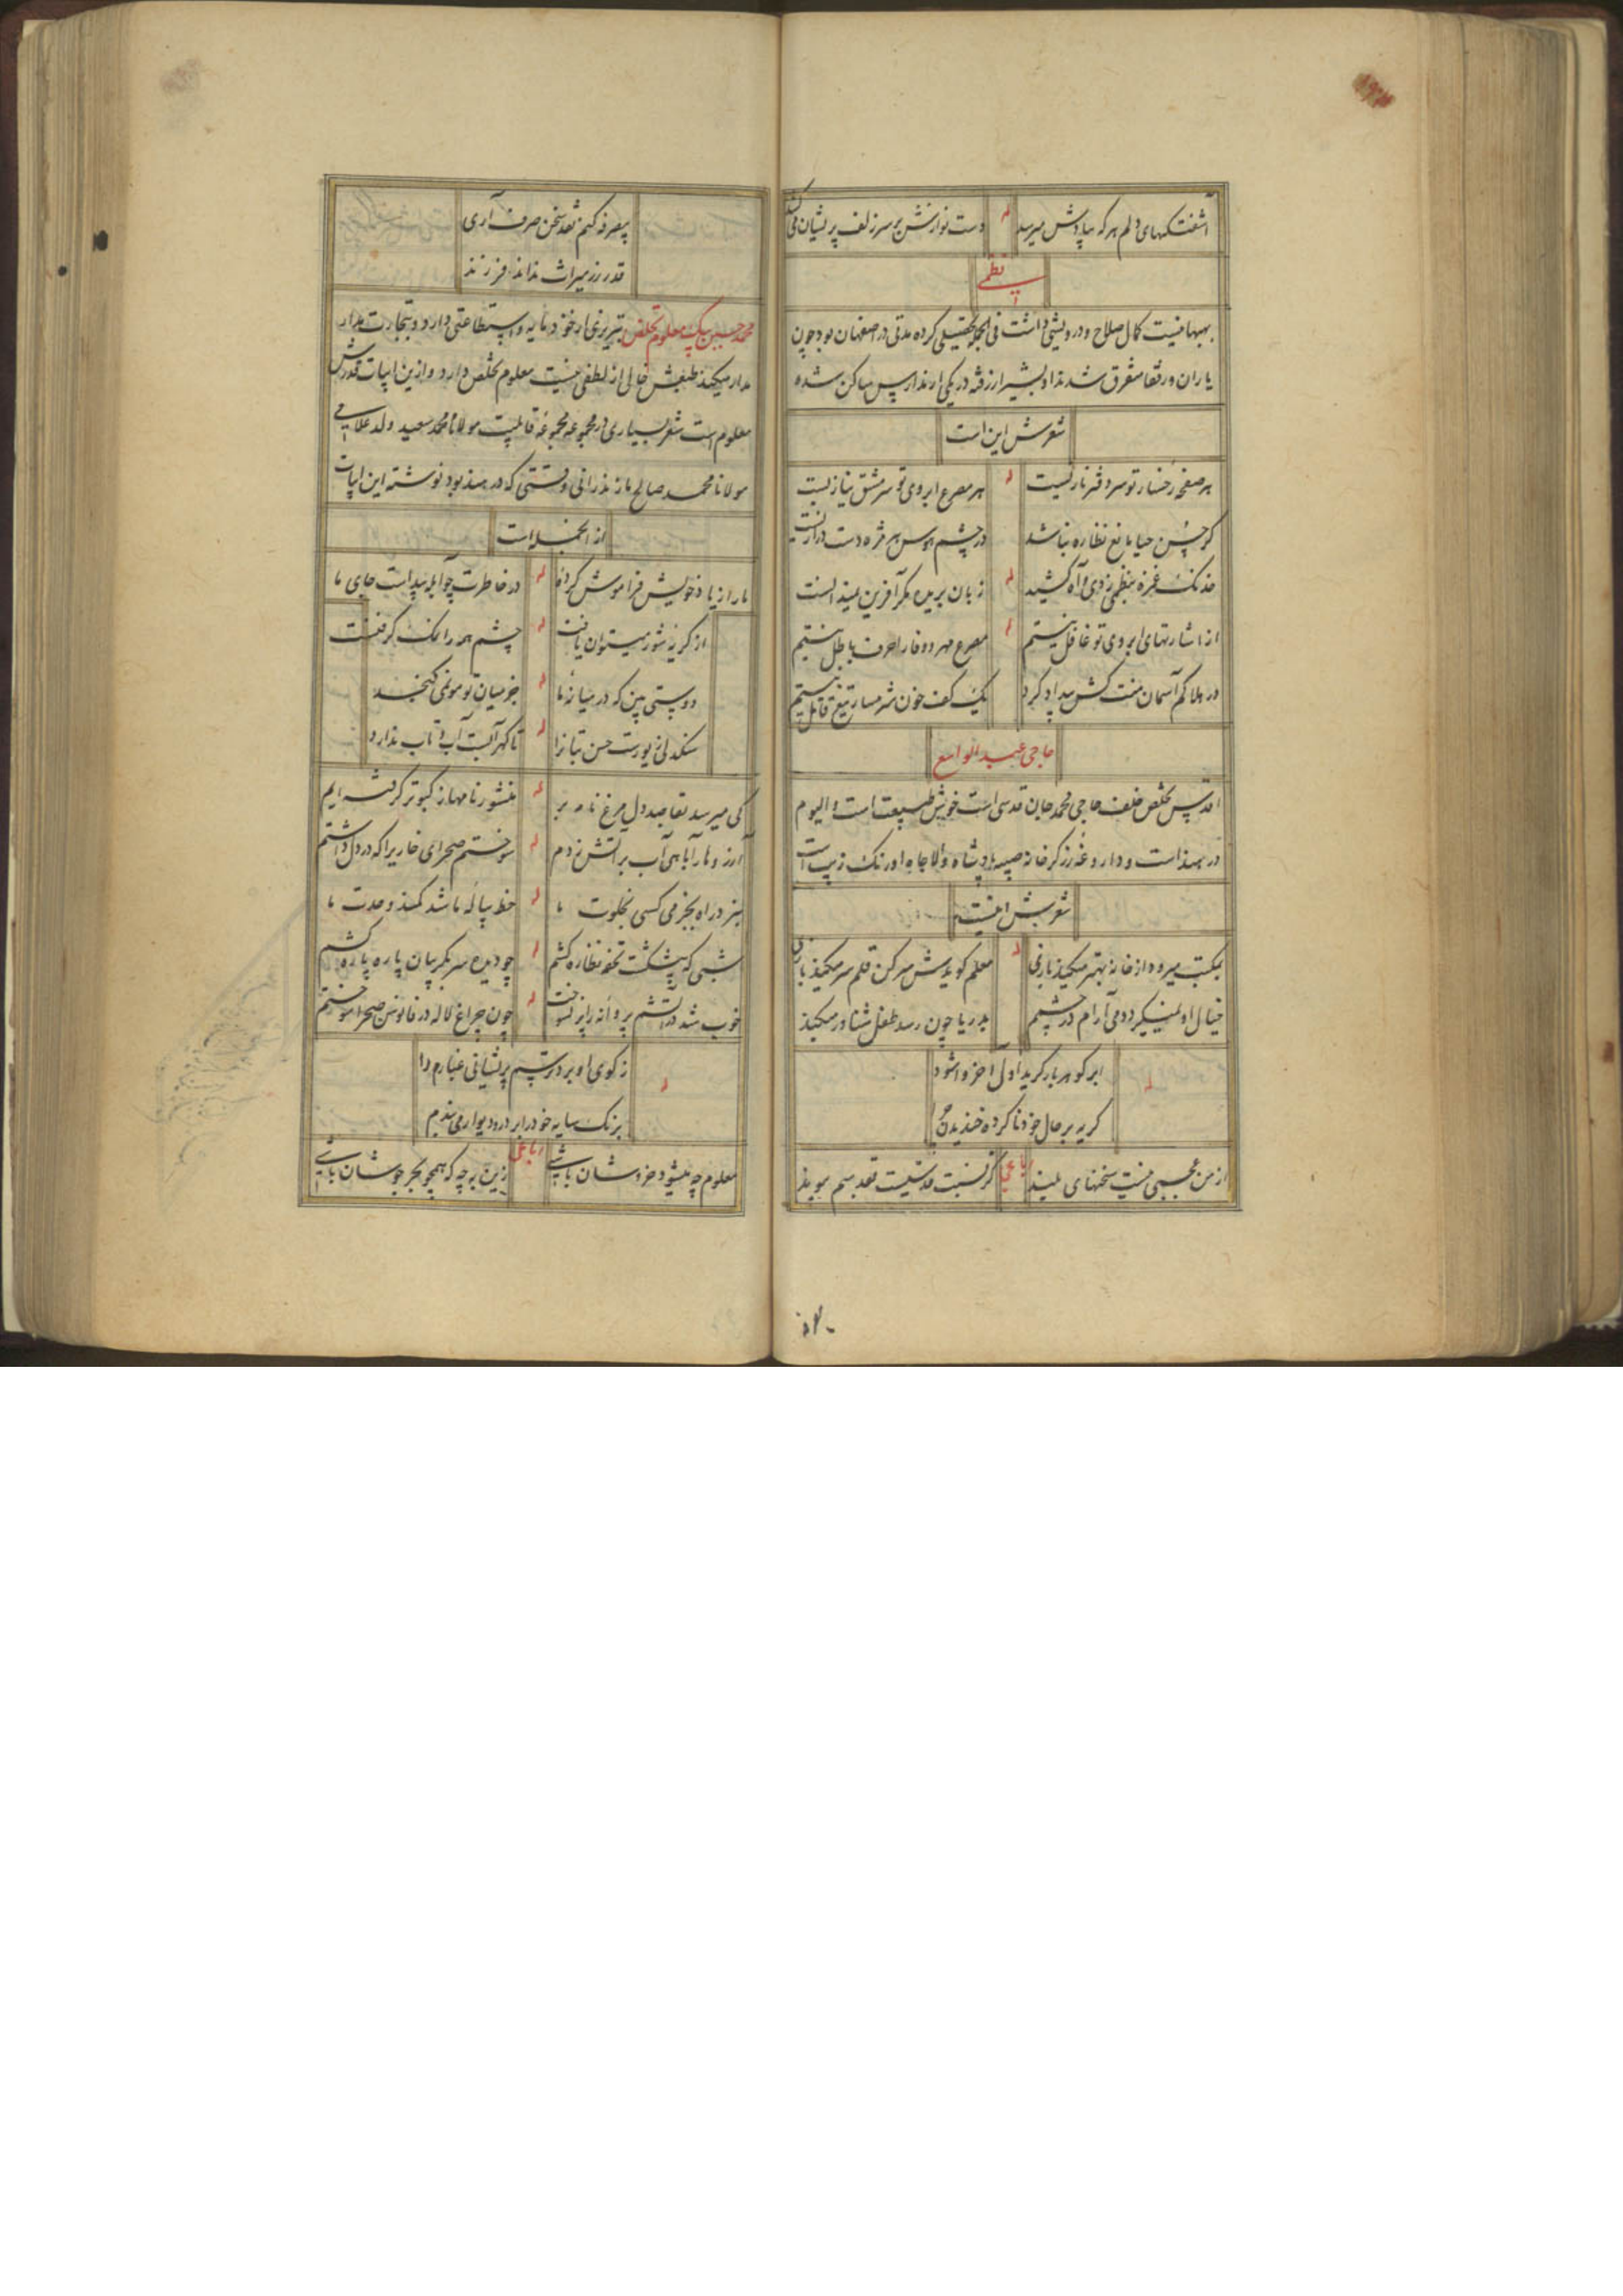 آشفتگیهای دلم هر که بیادش میرسد له دست نوازش بر سر زلف پریشان می کشد
نظمی
بهبهانیست کمال صلاح و درویشی داشت فی الجمله تحصیلی کرده مدتی در اصفهان بود چون
یاران و رفقا متفرق شدند او بشیراز رفته در یکی از مدارس ساکن شده
شعرش این است
هر صفحه رخسار تو سر دفتر نازیست له هر مصرع ابروی تو سرمشق نیازیست
گر حسن حیا مانع نظاره نباشد در چشم هوس هر مژه دست درازیست
خدنک غمزه بنظمی زدی و آه کشید له زبان بریده مکر آفرین بلند است
از اشارتهای ابروی تو غافل نیستم له مصرع مهر و وفا را حرف باطل نیستم
در هلاکم آسمان منت کش بیداد کرد یک کف خون شرمسار تیغ قاتل نیستم
حاجی عبدالواسع
اقدس تخلص خلف حاجی محمد جان قدسی است خوش طبیعت است و الیوم
در هند است و داروغه زرکرخانه صبیه پادشاه والاجاه اورنک زیب است
شعرش اینست
بمکتب میرود از خانه بهتر میکند بازی له معلم کویدش سر کن قلم سر میکند بازی
خیال او نمیکیرد دمی آرام در چشمم بدریا چون رسد طفل شناور میکند
ابر کوهربار کرید اول آخر وا شود له
کریه بر حال خود نا کرده خندیدن
از من عجبی نیست سخنهای بلند رباعی کر نسبت قدسیت تقدیسم بویند
بصرفه کنم نقد سخن صرف آری
قدر زر میراث نداند فرزند
محمد حسین بیک معلوم تخلص تبریزی از خود مایه و استطاعتی دارد و بتجارت مدار
مدار میکند طبعش خالی از لطفی نیست معلوم تخلص دارد و ازین ابیات قدرش
معلوم است شعر بسیاری در مجموعه مجموعه قابلیت مولانا محمد سعید ولد علامی
مولانا محمد صالح مازندرانی وقتی که در هند بود نوشته این ابیات
از انجمله است
ما را ز یاد خویش فراموش کرده له در خاطرت چو آبله پیداست جای ما
از کریه شور میتوان یافت له چشم همه را نمک کرفتست
دوستی بین که در میانه ما له جز میان تو موئی نکنجد
سنکدلی زیورست حسن بتانرا له تا کهر آبست آب و تاب ندارد
کی میرسد بقاصد دل مرغ نامه بر له منشور نامها ز کبوتر کرفته ایم
آرزوها را بآهی آب بر آتش زدم له سوختم صحرای خاریرا که در دل داشتم
نبرد راه بجز می کسی بخلوت ما له خط پیاله باشد کمند وحدت ما
شبی که پیشکشت تحفه نظاره کشم له چو دیده سر بکریبان پاره پاره کشم
خوب شد در آتشم پروانه را پر نسوخت له چون چراغ لاله در فانوس صحرا سوختم
ز کوی او برد ترسم پریشانی غبارم را له
برنک سایه خود را بر در و دیوار می بندم
معلوم چه میشود خروشان باشی رباعی زین به چه که همچو بحر جوشان باشی